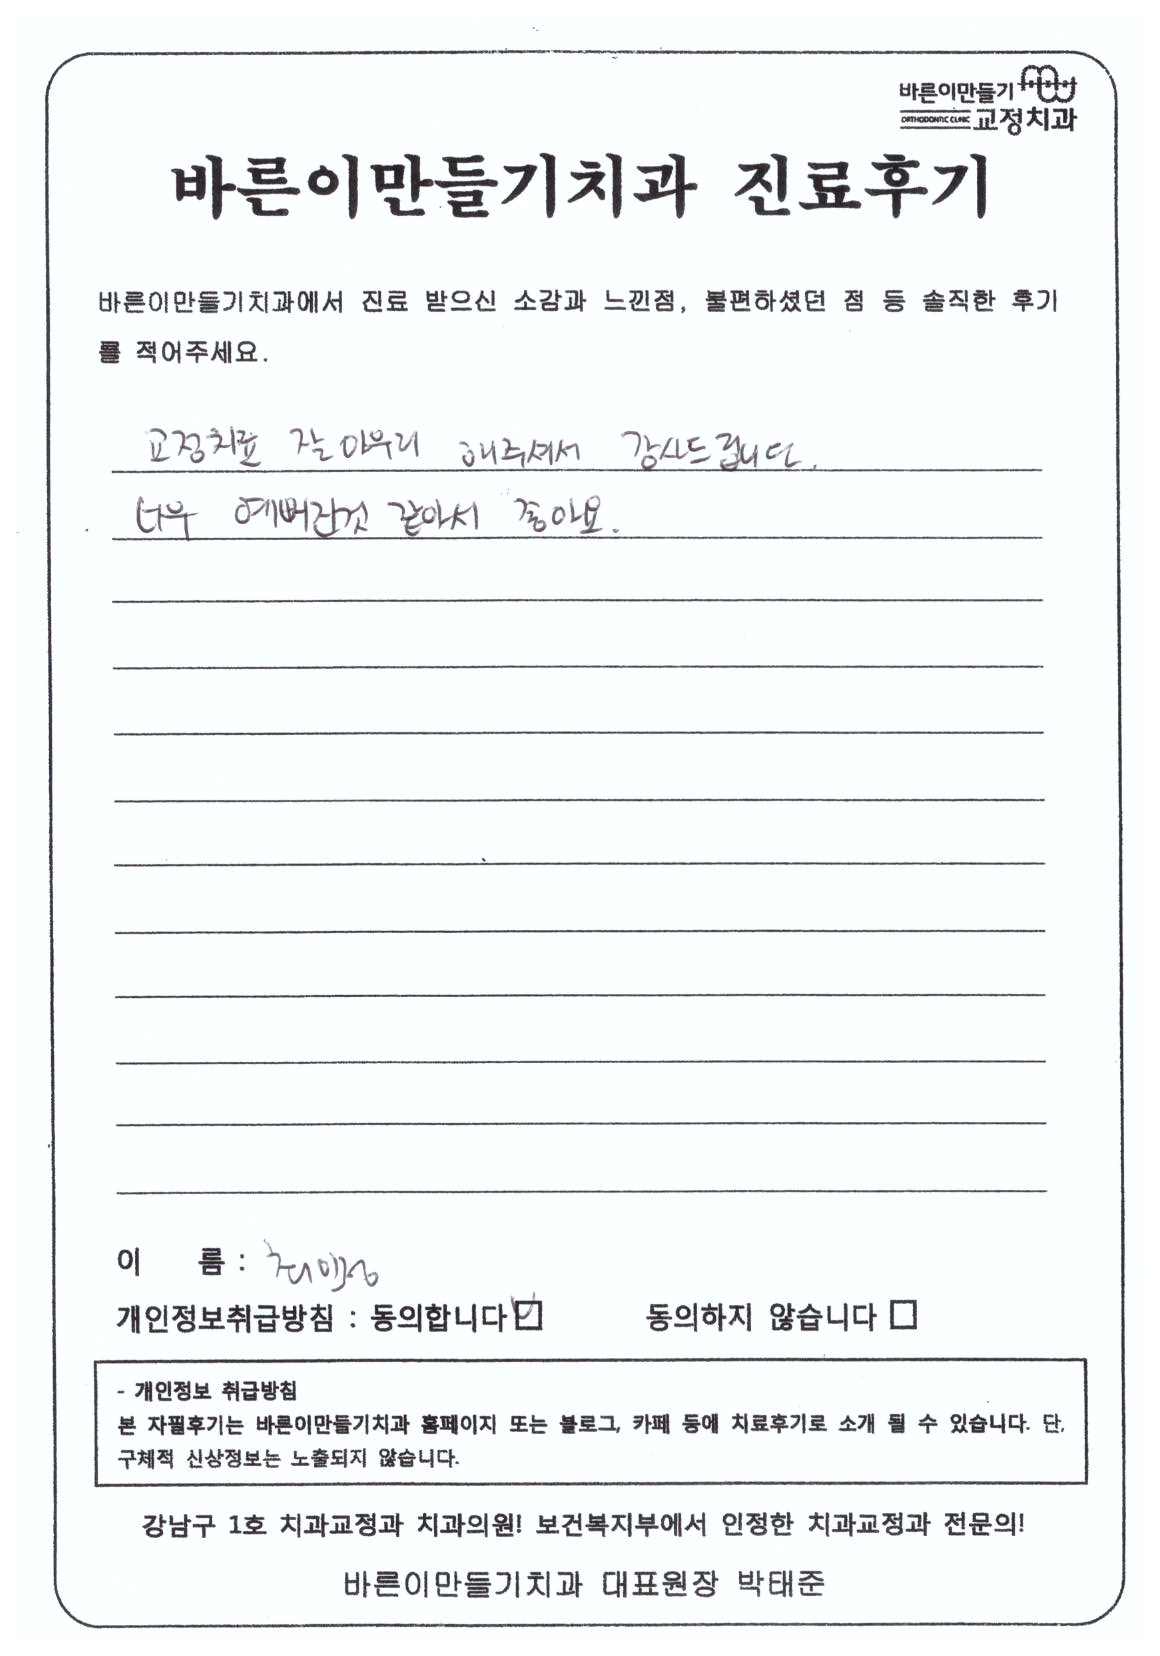 바른이만들기
ORTHODONTIC CLINIC 교정치과
바른이만들기치과 진료후기
바른이만들기치과에서 진료 받으신 소감과 느낀점, 불편하셨던 점 등 솔직한 후기
를 적어주세요.
교정치료 잘 마무리 해주셔서 감사드립니다.
너무 예뻐진것 같아서 좋아요.
이 름 :
개인정보취급방침 : 동의합니다 ☑ 동의하지 않습니다 □
- 개인정보 취급방침
본 자필후기는 바른이만들기치과 홈페이지 또는 블로그, 카페 등에 치료후기로 소개 될 수 있습니다. 단,
구체적 신상정보는 노출되지 않습니다.
강남구 1호 치과교정과 치과의원! 보건복지부에서 인정한 치과교정과 전문의!
바른이만들기치과 대표원장 박태준